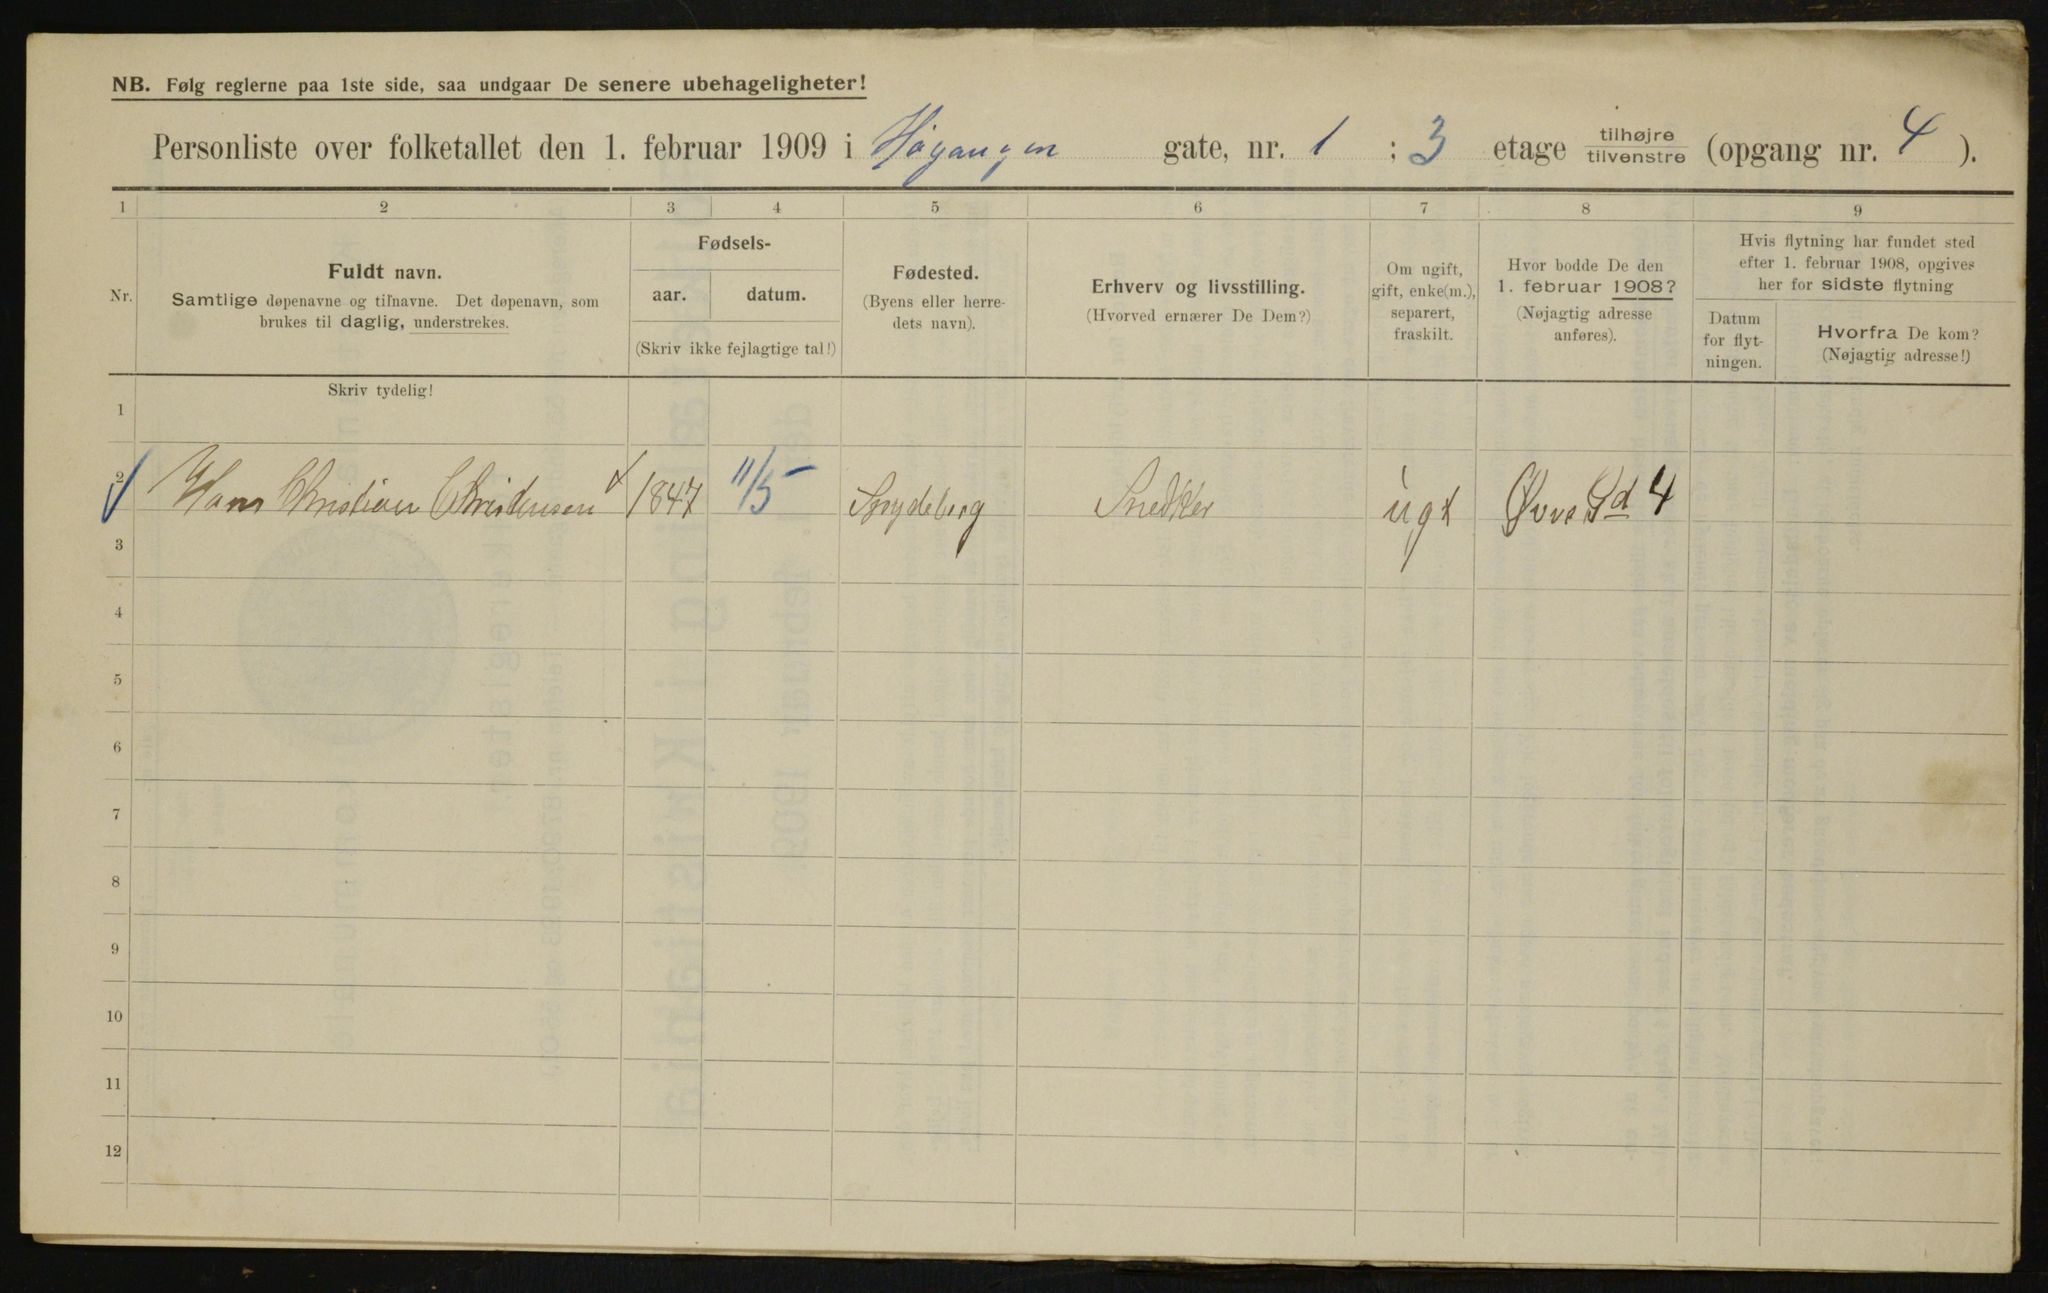 NB. Følg reglerne paa 1ste side, saa undgaar De senere ubehageligheter!
Personliste over folketallet den 1. februar 1909 i Høgangen gate, nr. 1 ; 3 etage tilhøjre tilvenstre (opgang nr. 4 ).
1 2 3 4 5 6 7 8 9
Nr.
Fuldt navn.
Samtlige døpenavne og tilnavne. Det døpenavn, som
brukes til daglig, understrekes.
Fødsels-
aar. datum.
(Skriv ikke fejlagtige tal!)
Fødested.
(Byens eller herre-
dets navn).
Erhverv og livsstilling.
(Hvorved ernærer De Dem?)
Om ugift,
gift, enke(m.),
separert,
fraskilt.
Hvor bodde De den
1. februar 1908?
(Nøjagtig adresse
anføres).
Hvis flytning har fundet sted
efter 1. februar 1908, opgives
her for sidste flytning
Datum
for flyt-
ningen.
Hvorfra De kom?
(Nøjagtig adresse!)
Skriv tydelig!
1
2 Hans Christian Christensen 1847 11/5 Spydeberg Snedker ugt Øvre Gd 4
3
4
5
6
7
8
9
10
11
12